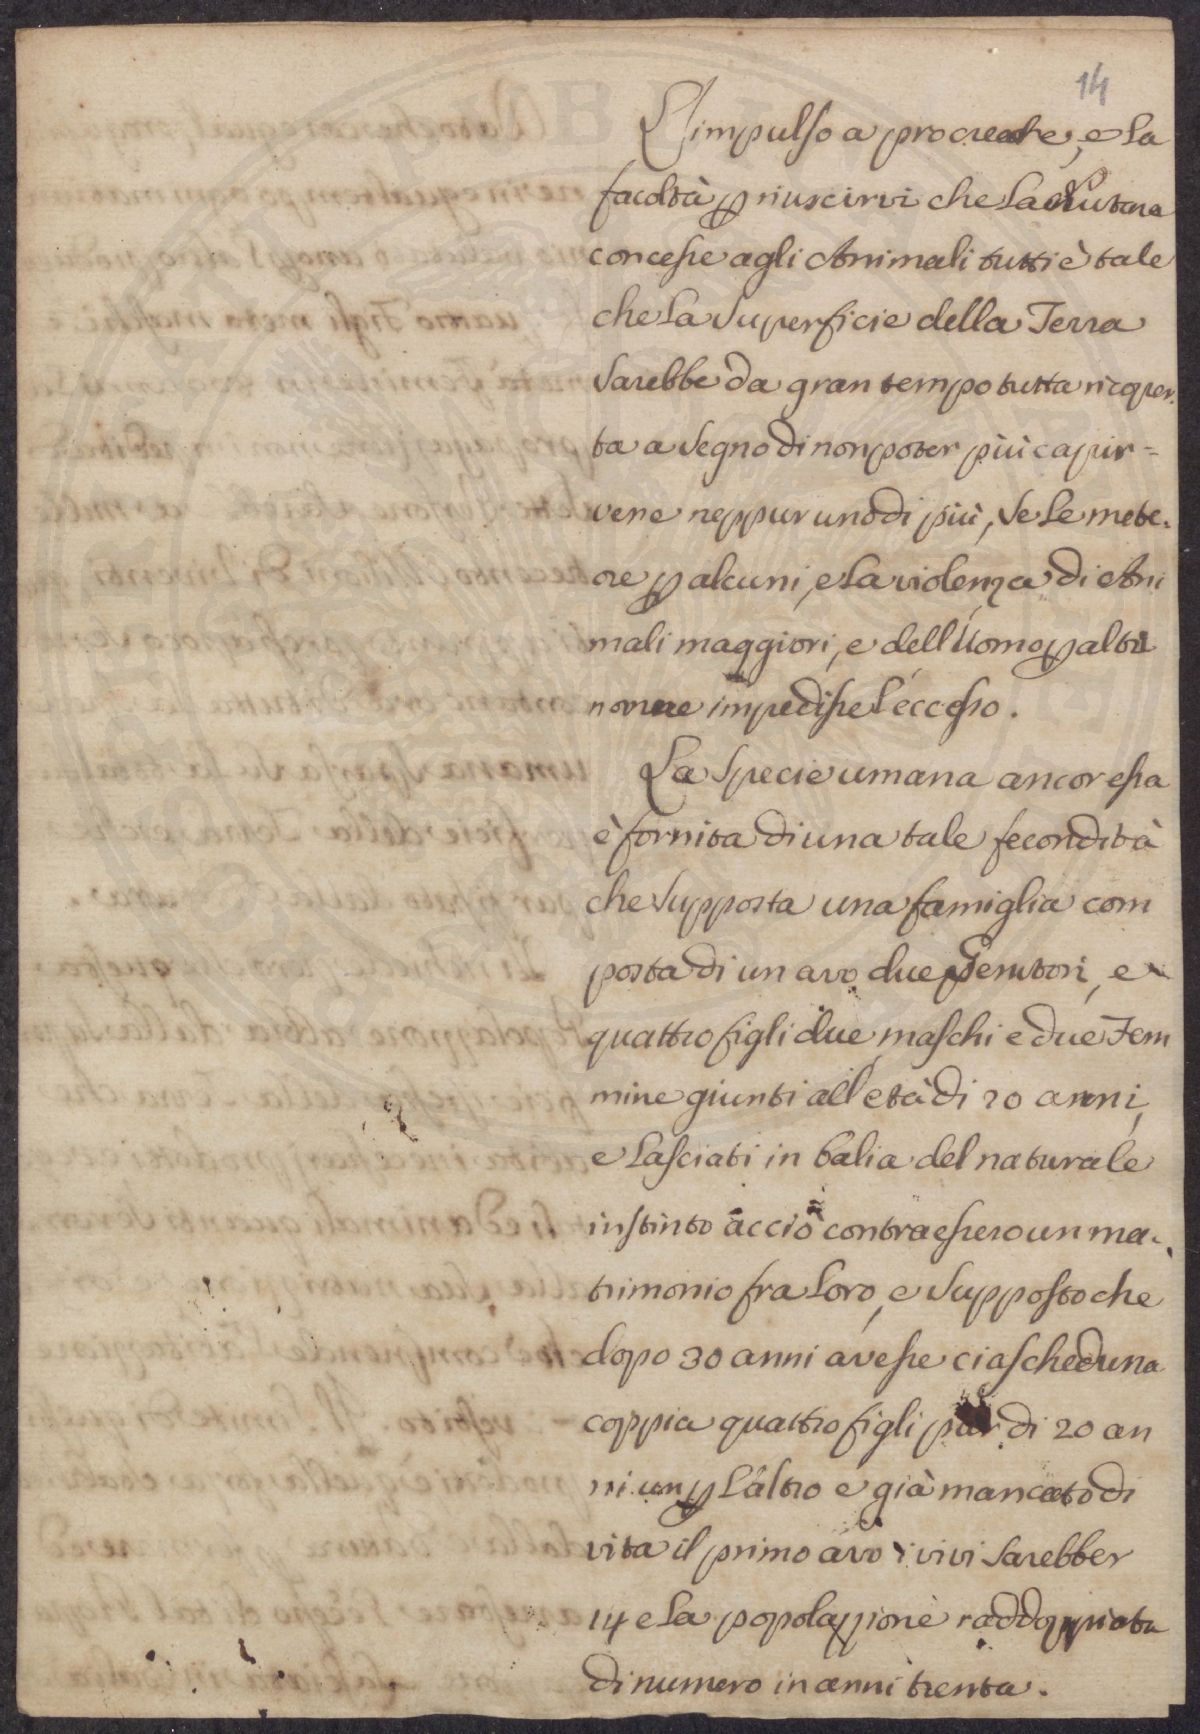 14
L'impulso a procreare, e la
facoltà ꝑ riuscirvi che la Natura
concesse agli Animali tutti è tale
che la Superficie della Terra
Sarebbe da gran tempo tutta ricoper-
ta a Segno di non poter più capir=
vene neppur uno di più, Se le mete-
ore ꝑ alcuni, e la violenza di Ani
mali maggiori, e dell'Uomo ꝑ altri
non ne impedisse l'eccesso.
La Specie umana ancor essa
è fornita di una tale fecondità
che Supposta una famiglia com
posta di un avo due Genitori, e
quattro figli due maschi e due Fem
mine giunti all'età di 20 anni,
e lasciati in balia del naturale
instinto acciò contraessero un ma-
trimonio fra loro, e Supposto che
dopo 30 anni avesse ciascheduna
coppia quattro figli pur di 20 an
ni un ꝑ l'altro e già mancato di
vita il primo avo i vivi Sarebber
14 e la popolazione raddoppiata
di numero in anni trenta.